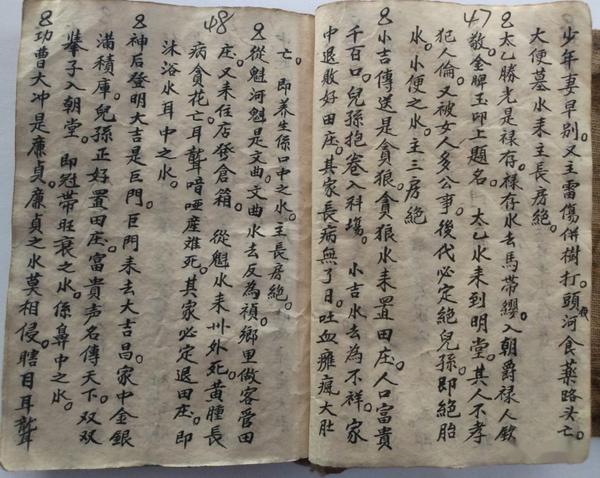 少年妻早别。又主雷傷併樹打。頭河食藥路头亡。
大便墓水来主長房絶。
太乙勝光是禄存。禄存水去馬带纓。入朝爵禄人欽
47
敬。金牌玉印上題名。太乙水来到明堂。其人不孝
犯人倫又被女人多公事。後代必定絶兒孫。即絶胎
水。小便之水。主三房絶
小吉傳送是貪狼。貪狼水来置田庄。人口富貴
千百口。兒孫抱卷入科塲。小吉水去為不祥。家
中退敗好田庄。其家長病無了日。吐血癱瘋大肚
亡。即养生係口中之水。主長房絶。
從魁河魁是文曲。文曲水去反為禎鄉里做客管田
48
庄。又来住店發倉箱。從魁水来州外死。黄腫長
病貪花。亡耳聾喑啞産难死。其家必定退田庄。即
沐浴水耳中之水。
神后登明大吉是巨門。巨門来去大吉昌。家中金銀
满積庫。兒孫正好置田庄。富貴声名傳天下。双双
拳子入朝堂。即冠帶旺衰之水。係鼻中之水。
功曹大冲是廉貞。廉貞之水莫相侵。瞎目耳聾